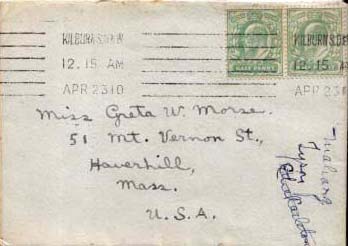 KILBURN S.D.N.W
12.15 AM
APR 23 10
HALF PENNY
KILBURN S.D.
12.15 AM
APR 23 10
Miss Greta W. Morse.
51 Mt. Vernon St.,
Haverhill,
Mass.
U.S.A.
Tyson